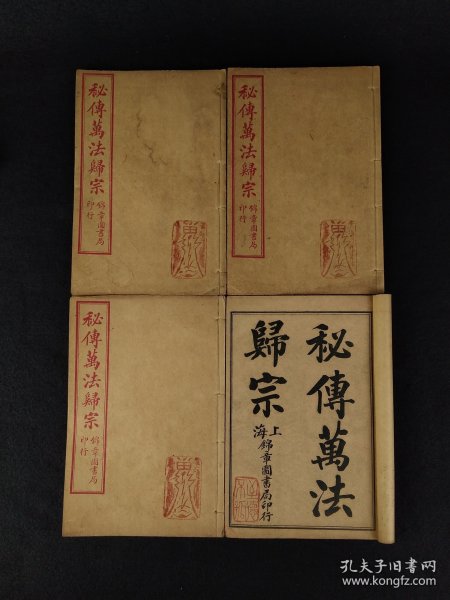 秘傳萬法歸宗
錦章圖書局
印行
秘傳萬法歸宗
錦章圖書局
印行
秘傳萬法歸宗
錦章圖書局
印行
秘傳萬法
歸宗
上海錦章圖書局印行
孔夫子旧书网
www.kongfz.com